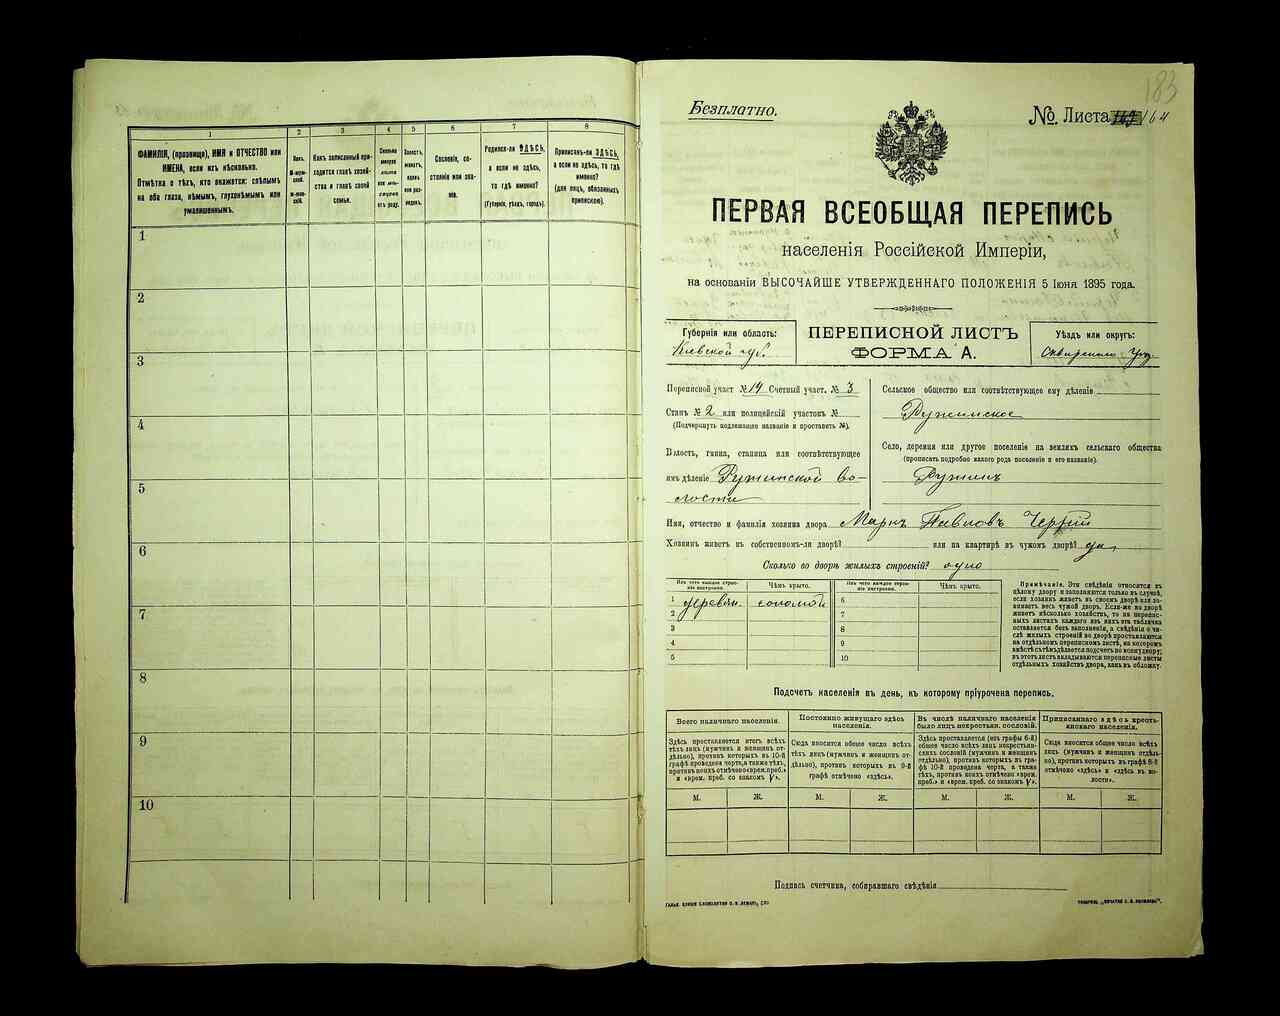 1
2
3
4
5
6
7
8
ФАМИЛІЯ, (прозвище), ИМЯ и ОТЧЕСТВО или
ИМЕНА, если ихъ нѣсколько.
Отмѣтка о тѣхъ, кто окажется: слѣпымъ
на оба глаза, нѣмымъ, глухонѣмымъ или
умалишеннымъ.
Какъ записанный при-
ходится главѣ хозяй-
ства и главѣ своей
семьи.
Сословіе, со-
стояніе или зва-
ніе.
Родился-ли ЗДѢСЬ,
а если не здѣсь,
то гдѣ именно?
(Губернія, уѣздъ, городъ).
Приписанъ-ли ЗДѢСЬ,
а если не здѣсь, то гдѣ
именно?
(для лицъ, обязанныхъ
припискою).
1
2
3
4
5
6
7
8
9
10
183
Безплатно.
№ Листа 164
ПЕРВАЯ ВСЕОБЩАЯ ПЕРЕПИСЬ
населенія Россійской Имперіи,
на основаніи ВЫСОЧАЙШЕ УТВЕРЖДЕННАГО ПОЛОЖЕНІЯ 5 Іюня 1895 года.
Губернія или область:
Кіевской губ.
ПЕРЕПИСНОЙ ЛИСТЪ
ФОРМА А.
Уѣздъ или округъ:
Сквирскаго Уѣз.
Переписной участ № 14 Счетный участ. № 3
Станъ № 2 или полицейскій участокъ №
(Подчеркнуть подлежащее названіе и проставить №).
Волость, гмина, станица или соотвѣтствующее
имъ дѣленіе Ружинской во-
лости
Сельское общество или соотвѣтствующее ему дѣленіе
Ружинское
Село, деревня или другое поселеніе на земляхъ сельскаго общества
(прописать подробно какого рода поселеніе и его названіе).
Ружинъ
Имя, отчество и фамилія хозяина двора Маркъ Павловъ
Хозяинъ живетъ въ собственномъ-ли дворѣ? или на квартирѣ въ чужомъ дворѣ? да
Сколько во дворѣ жилыхъ строеній? одно
Изъ чего каждое строе-
ніе построено.
Чѣмъ крыто.
Изъ чего каждое строе-
ніе построено.
Чѣмъ крыто.
1 деревян. соломой
2
3
4
5
6
7
8
9
10
Примѣчаніе. Эти свѣдѣнія относятся къ
цѣлому двору и заполняются только въ случаѣ,
если хозяинъ живетъ въ своемъ дворѣ или за-
нимаетъ весь чужой дворъ. Если-же на дворѣ
живетъ нѣсколько хозяйствъ, то на переписн-
ыхъ листахъ каждаго изъ нихъ эта табличка
оставляется безъ заполненія, а свѣдѣнія о чи-
слѣ жилыхъ строеній во дворѣ проставляются
на отдѣльномъ переписномъ листѣ, на которомъ
вмѣстѣ съ тѣмъ дѣлается подсчетъ по всему двору;
въ этотъ листъ вкладываются переписные листы
отдѣльныхъ хозяйствъ двора, какъ въ обложку.
Подсчетъ населенія въ день, къ которому пріурочена перепись.
Всего наличнаго населенія.
Здѣсь проставляется итогъ всѣхъ
тѣхъ лицъ (мужчинъ и женщинъ от-
дѣльно), противъ которыхъ въ 10-й
графѣ проведена черта, а также тѣхъ,
противъ коихъ отмѣчено «врем. преб.»
и «врем. преб. со знакомъ V».
Постоянно живущаго здѣсь
населенія.
Сюда вносится общее число всѣхъ
тѣхъ лицъ (мужчинъ и женщинъ от-
дѣльно), противъ которыхъ въ 9-й
графѣ отмѣчено «здѣсь».
Въ числѣ наличнаго населенія
было лицъ некрестьян. сословій.
Здѣсь проставляется (изъ графы 6-й)
общее число всѣхъ лицъ некрестьян-
скихъ сословій (мужчинъ и женщинъ
отдѣльно), противъ которыхъ въ гра-
фѣ 10-й проведена черта, а также
тѣхъ, противъ коихъ отмѣчено «врем.
преб.» и «врем. преб. со знакомъ V».
Приписаннаго здѣсь кресть-
янскаго населенія.
Сюда вносится общее число всѣхъ
лицъ (мужчинъ и женщинъ отдѣль-
но), противъ которыхъ въ графѣ 8-й
отмѣчено «здѣсь» и «здѣсь въ во-
лости».
М. Ж. М. Ж. М. Ж. М. Ж.
Подпись счетчика, собиравшаго свѣдѣнія